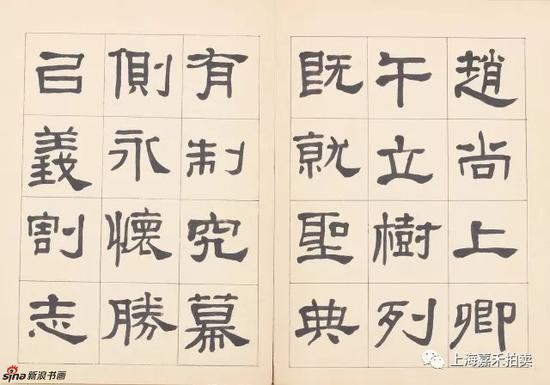 趙尚上卿
午立樹列
既就聖典
有制究幕
側永懷勝
㠯義割志
sina新浪书画
上海嘉禾拍卖